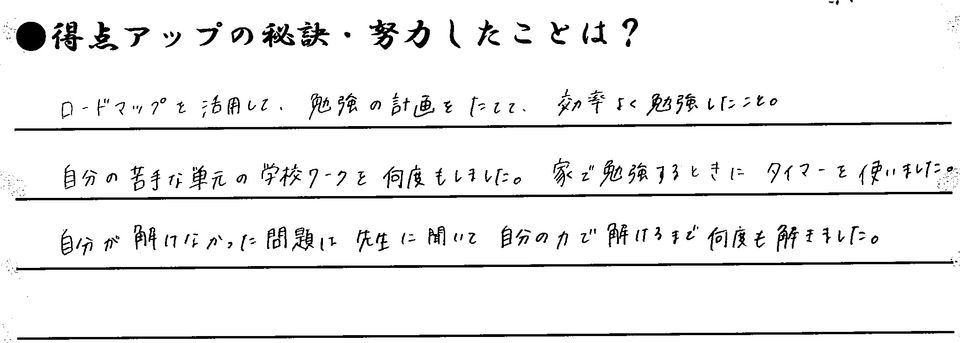 ●得点アップの秘訣・努力したことは？
ロードマップを活用して、勉強の計画をたてて、効率よく勉強したこと。
自分の苦手な単元の学校ワークを何度もしました。家で勉強するときにタイマーを使いました。
自分が解けなかった問題は先生に聞いて自分の力で解けるまで何度も解きました。